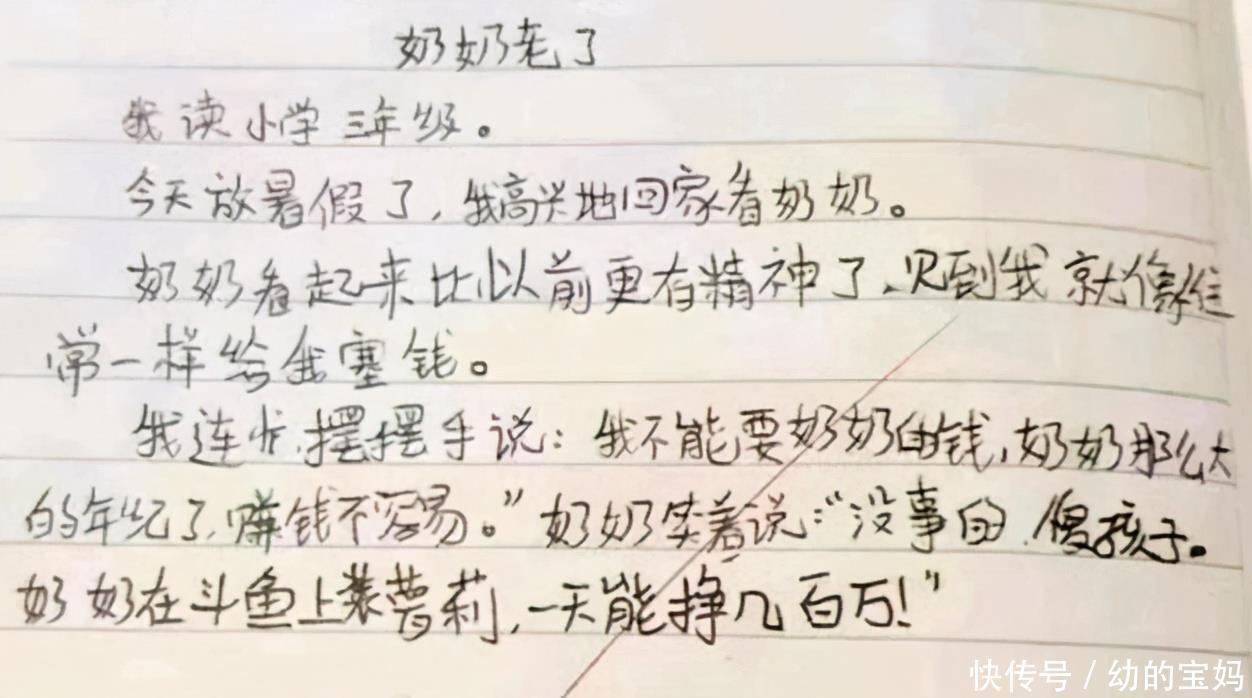 奶奶老了
我读小学三年级。
今天放暑假了,我高兴地回家看奶奶。
奶奶看起来比以前更有精神了,见到我就像往
常一样给我塞钱。
我连忙摆摆手说:我不能要奶奶的钱,奶奶那么大
的年纪了,赚钱不容易。”奶奶笑着说:“没事的,傻孩子。
奶奶在斗鱼上装萝莉,一天能挣几百万!”
快传号 / 幼的宝妈